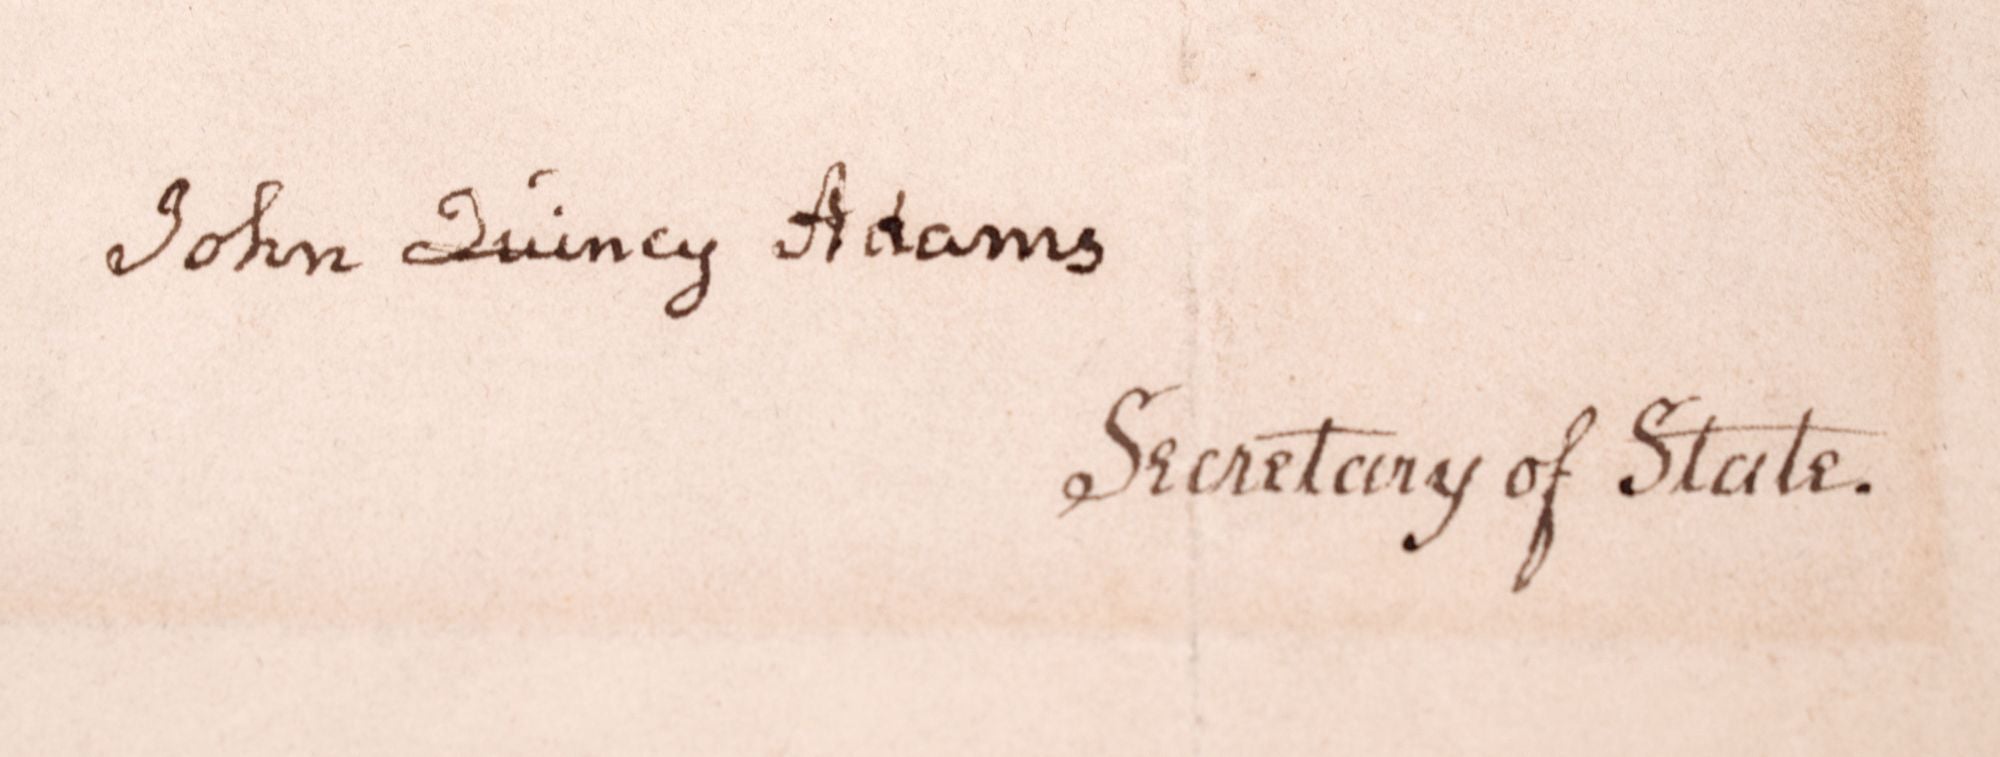 John Quincy Adams
Secretary of State.